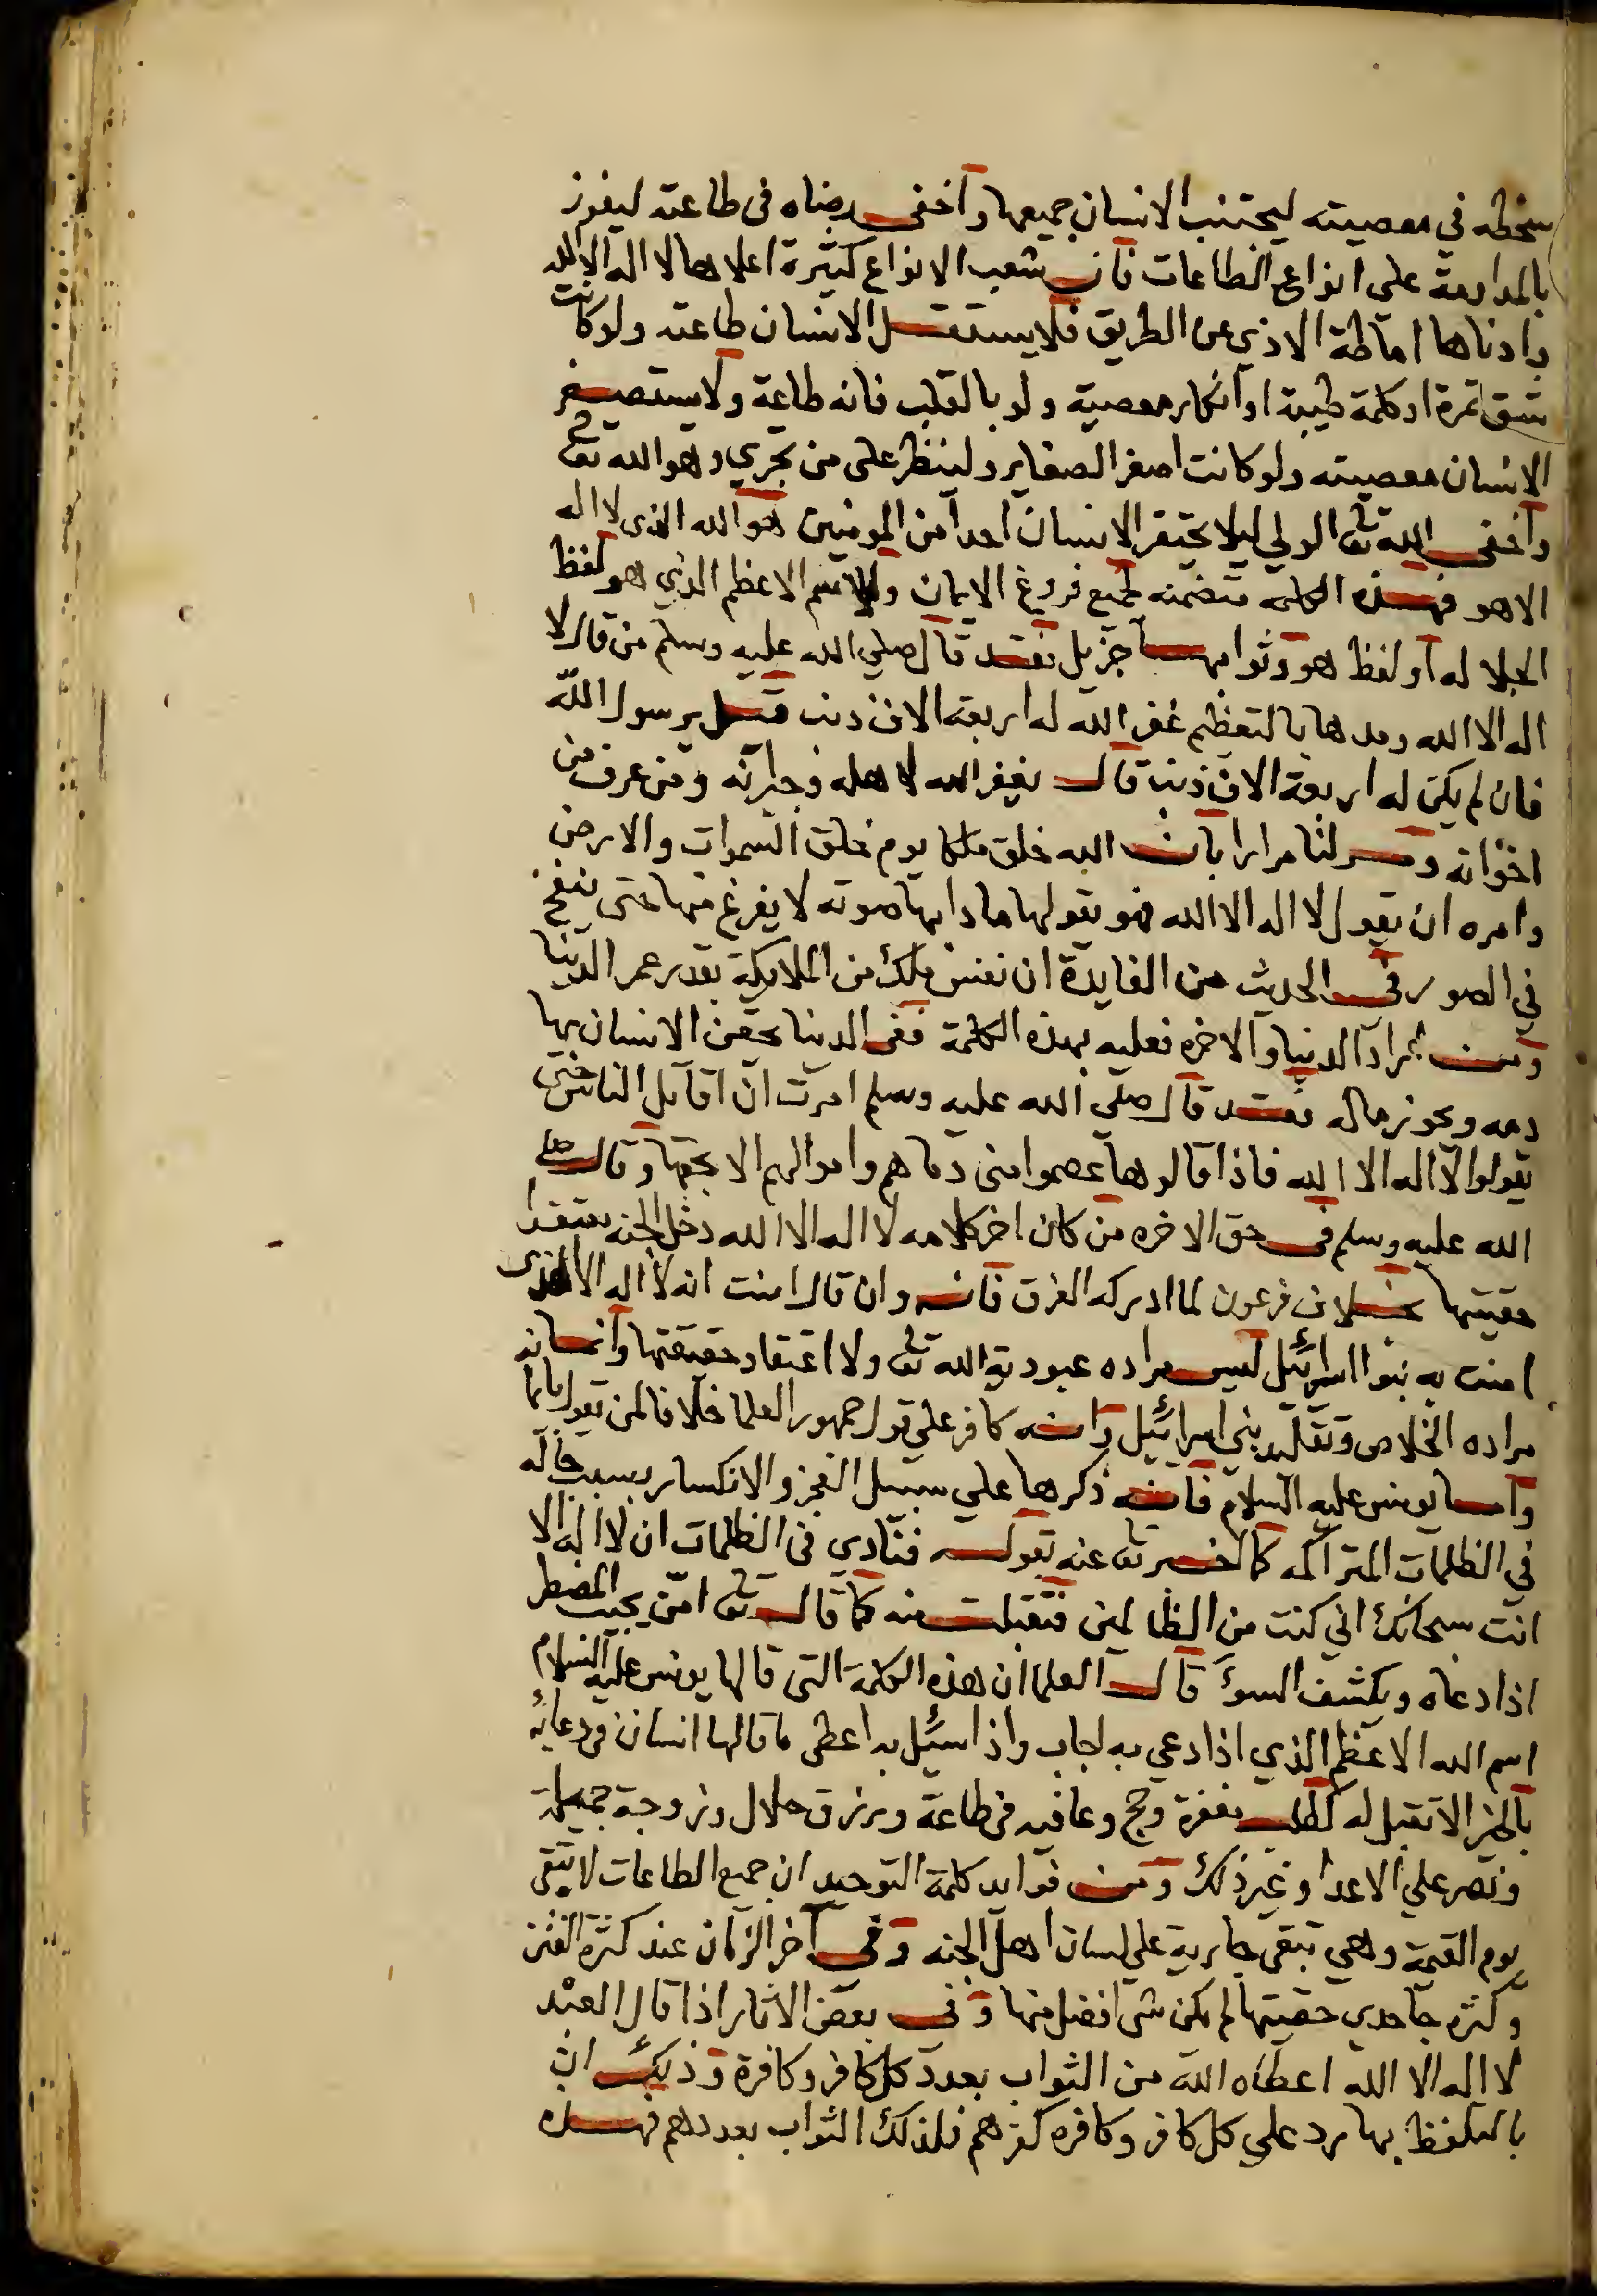 سخطه في معصيته ليجتنب الانسان جميعها واخفى رضاه في طاعته ليفوز
بالمداومة علي انواع الطاعات فان شعب الانواع كثيرة اعلاها لا اله الا الله
وادناها اماطة الاذي عن الطريق فلا يستقل الانسان طاعته ولو كانت
شق تمرة او كلمة طيبة او انكار معصية ولو بالقلب فانه طاعة ولا يستصغر
الانسان معصيته ولو كانت اصغر الصغاير ولينظر على من تجري وهو الله تع
واخفى الله تع الولي ليلا يحتقر الانسان احدا من المومنين هو الله الذى لا اله
الا هو فهذه الكلمه متضمنه لجميع فروع الايمان والاسم الاعظم الذي هو لفظ
الجلاله او لفظ هو وثوابها جزيل فقد قال صلي الله عليه وسلم من قال لا
اله الا الله ومدها بالتعظيم غفر الله له اربعة الاف ذنب قيل يرسول الله
فان لم يكن له اربعة الاف ذنب قال يغفر الله لاهله وجيرانه ومن عرف من
اخوانه ومر لنا مرارا بان الله خلق ملكا يوم خلق السموات والارض
وامره ان يقول لا اله الا الله فهو يقولها مادا بها صوته لا يفرغ منها حتى ينفخ
في الصور وفي الحديث من الفايدة ان نفس ملك من الملايكة بقدر عمر الدنيا
ومن اراد الدنيا والاخره فعليه بهذه الكلمة ففى الدنيا يحقن الانسان بها
دمه ويحوز ماله فقد قال صلي الله عليه وسلم امرت ان اقاتل الناس حتى
يقولوا لا اله الا الله فاذا قالوها عصموا منى دماهم واموالهم الا بحقها وقال صلى
الله عليه وسلم فى حق الاخره من كان اخر كلامه لا اله الا الله دخل الجنه معتقدا
حقيتها بخلاف فرعون لما ادركه الغرق فانه وان قال امنت انه لا اله الا الذى
امنت به بنوا اسرائيل ليس مراده عبودية الله تع ولا اعتقاد حقيقتها وانما
مراده الخلاص وتقليد بني اسرائيل وانه كافر علي قول جمهور العلما خلافا لمن يقول بايما
واما يونس عليه السلام فانه ذكرها علي سبيل العجز والانكسار بسبب حاله
في الظلمات المتراكمه كما اخبر تع عنه بقوله فنادي فى الظلمات ان لا اله الا
انت سبحانك اني كنت من الظالمين فتقبلت منه كما قال تع امن يجيب المضطر
اذا دعاه ويكشف السوء قال العلما ان هذه الكلمة التى قالها يونس عليه السلام
اسم الله الاعظم الذي اذا دعي به اجاب واذا سئيل به اعطى ما قالها انسان فى دعايه
بالخير الا تقبل له كطلب مغفرة وحج وعافيه فى طاعة ورزق حلال وزوجة جميلة
ونصر علي الاعدا وغير ذلك ومن فوايد كلمة التوحيد ان جميع الطاعات لا تبقى
يوم القيمة وهي تبقى جارية علي لسان اهل الجنه وفي آخر الزمان عند كثرة الفتن
وكثره جاحدي حقيتها لم يكن شي افضل منها وفي بعض الاثار اذا قال العبد
لا اله الا الله اعطاه الله من الثواب بعدد كل كافر وكافرة وذلك ان
بالتلفظ بها يرد علي كل كافر وكافره كفرهم فلذلك الثواب بعددهم فهذه